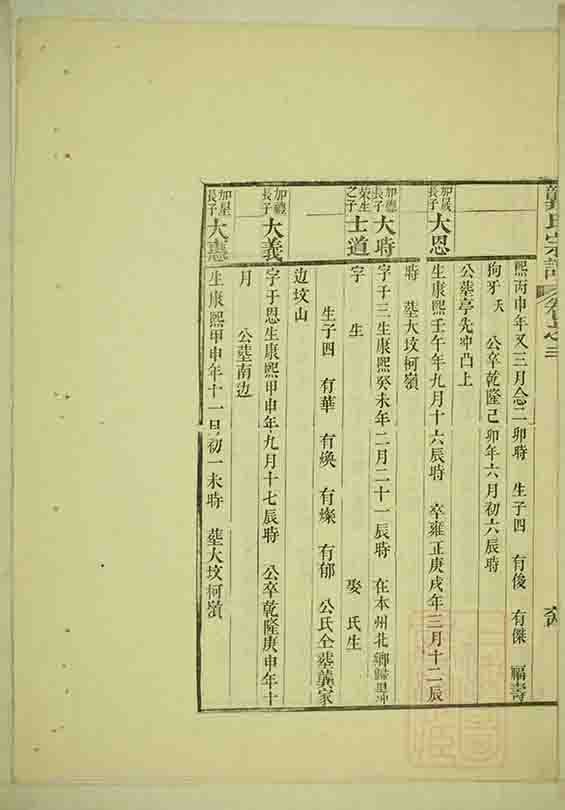 龔氏宗譜 卷之三
熙丙申年又三月念二卯時 生子四 有俊 有傑 福壽
狗牙 公卒乾隆己卯年六月初六辰時
公墓亭先冲凸上
加晟長子 大恩 生康熙壬午年九月十六辰時 卒雍正庚戌年三月十二辰
時 墓大坟柯嶺
加德長子 大時 字于三生康熙癸未年二月二十一辰時 在本州北鄉歸思冲
榮生之子 士道 字 生 娶 氏生
生子四 有華 有煥 有燦 有郁 公氏仝墓龔家
边坟山
加禮長子 大義 字于恩生康熙甲申年九月十七辰時 公卒乾隆庚申年十
月 公墓南边
加星長子 大憲 生康熙甲申年十一月初一未時 墓大坟柯嶺